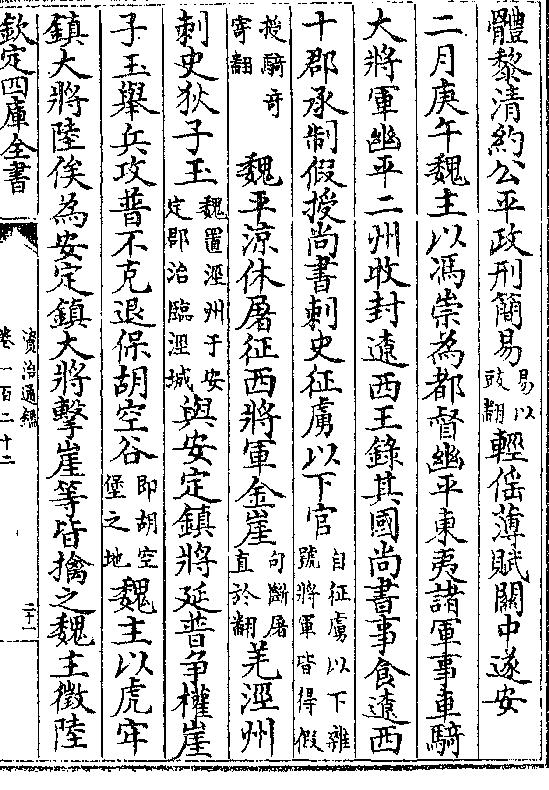 體黎清約公平政刑簡易易以豉翻輕徭薄賦關中遂安
二月庚午魏主以馮崇為都督幽平東夷諸軍事車騎
大將軍幽平二州牧封遼西王錄其國尚書事食遼西
十郡承制假授尚書刺史征虜以下官自征虜以下雜號將軍皆得假
授騎奇寄翻 魏平涼休屠征西將軍金崖句斷屠直於翻羌涇州
刺史狄子玉魏置涇州于安定郡治臨涇城與安定鎮將延普爭權崖
子玉舉兵攻普不克退保胡空谷即胡空堡之地魏主以虎牢
鎮大將陸俟為安定鎮大將擊崖等皆擒之魏主徵陸
欽定四庫全書
資治通鑑
卷一百二十二
二十